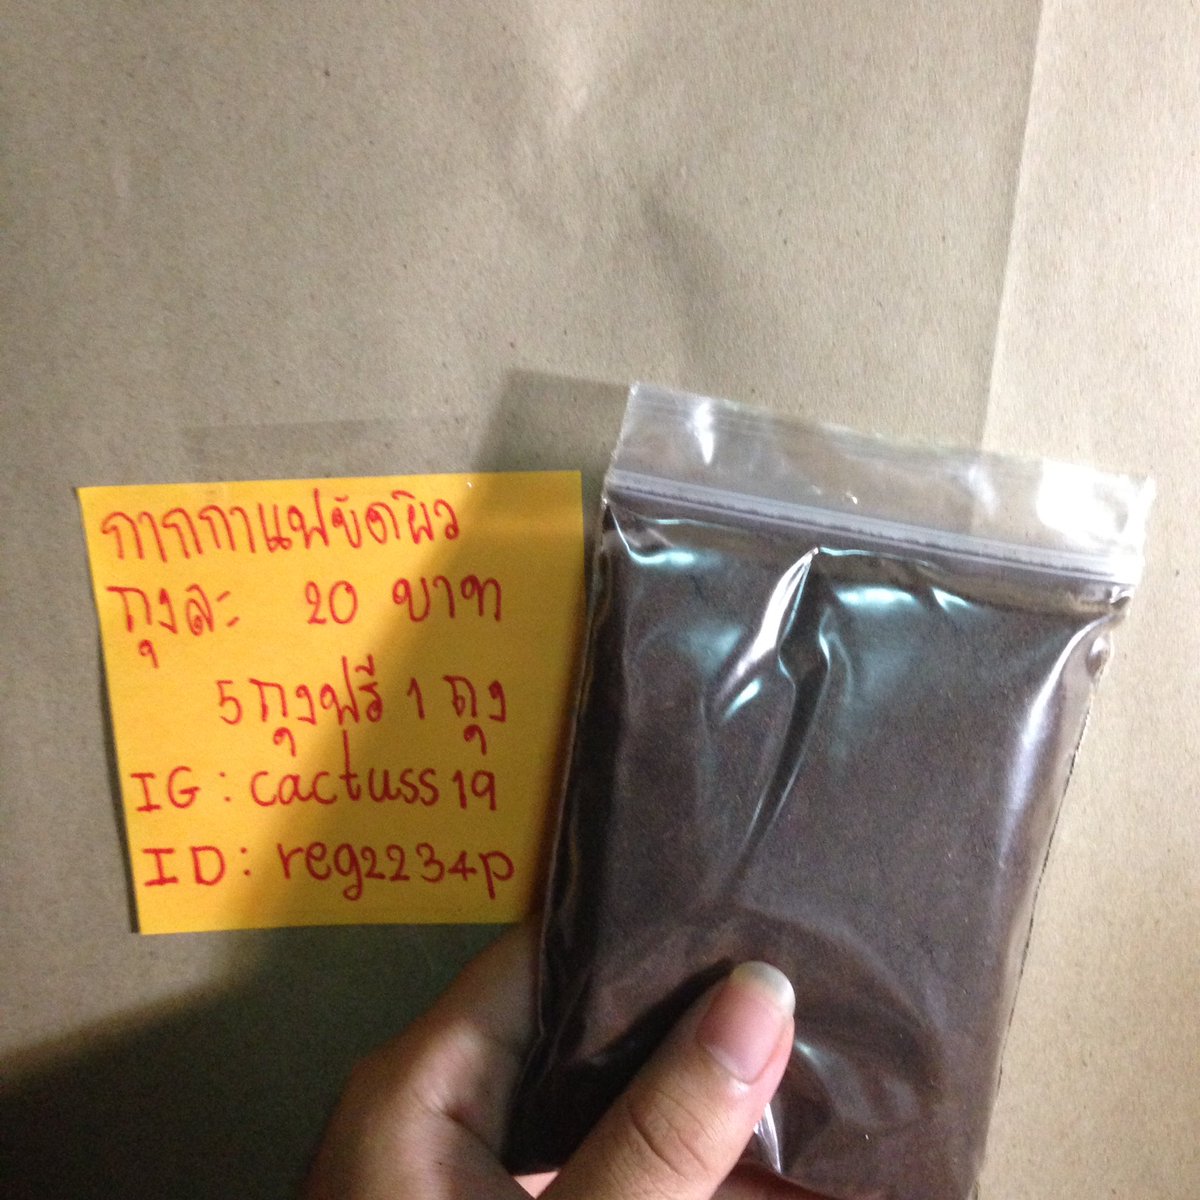 กากกาแฟขัดผิว
ถุงละ 20 บาท
5 ถุงฟรี 1 ถุง
IG : cactuss19
ID : reg2234p